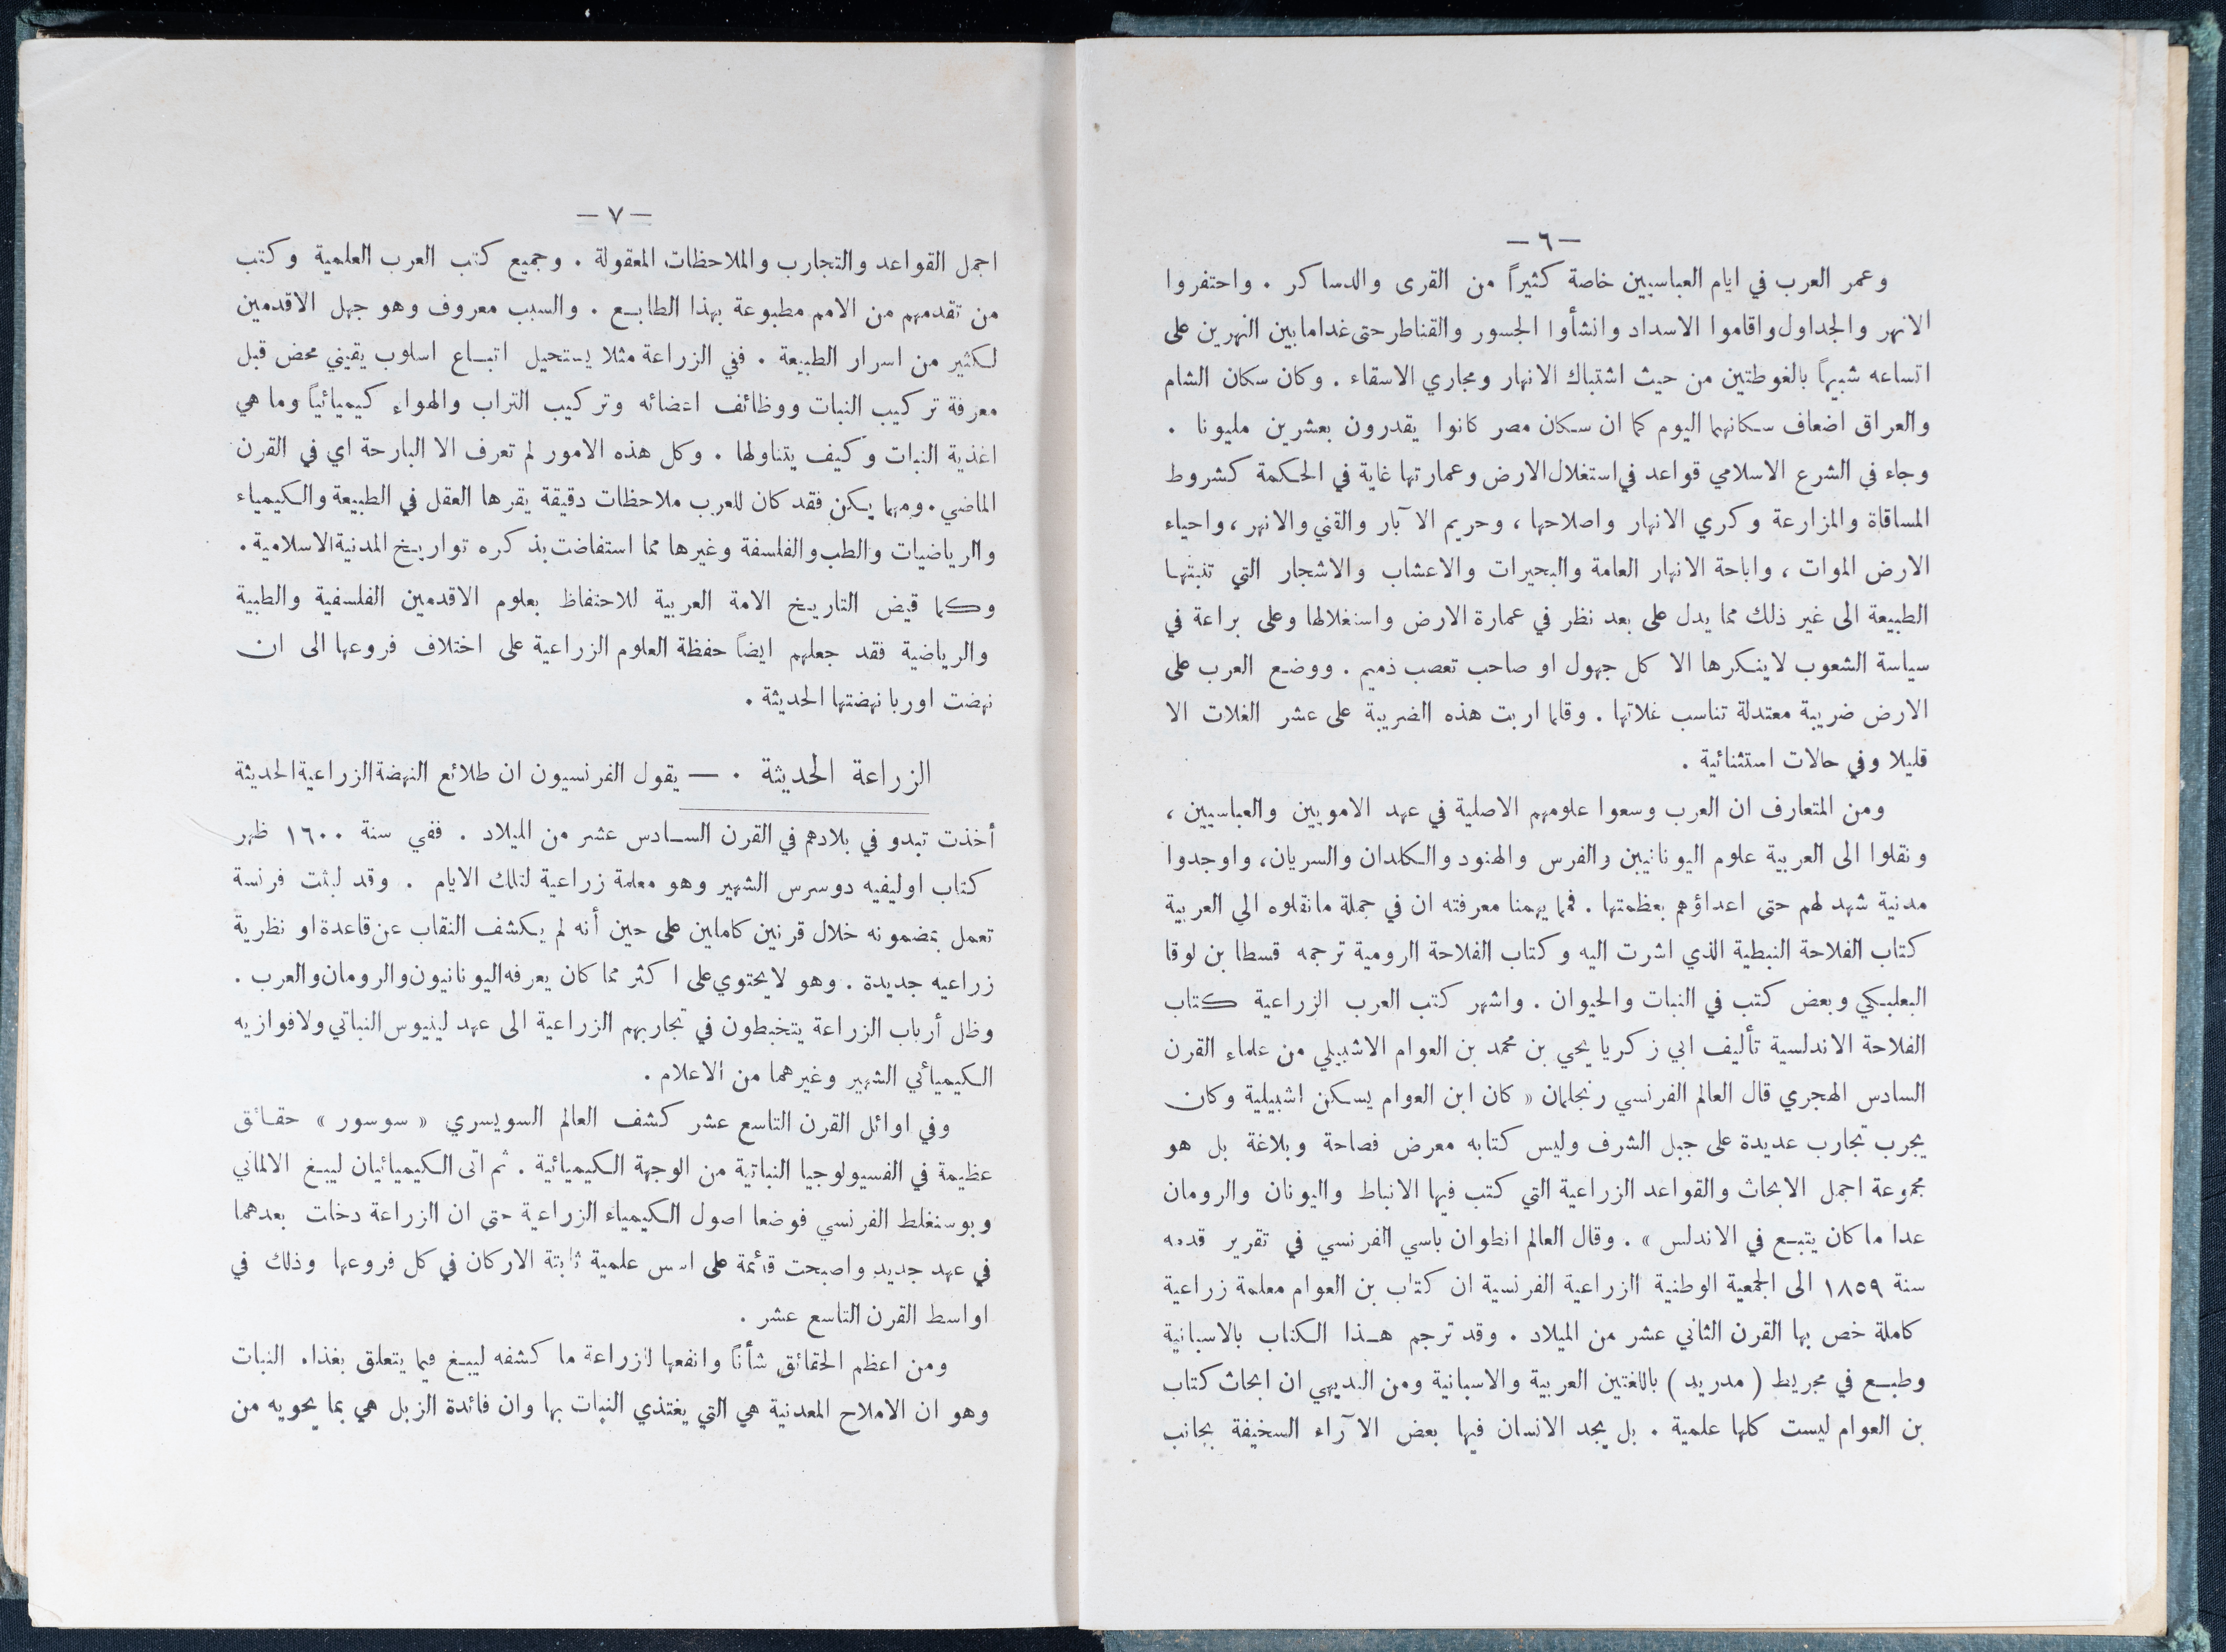 — ٦ —
وعمر العرب في ايام العباسيين خاصة كثيراً من القرى والدساكر . واحتفروا
الانهر والجداول واقاموا الاسداد وانشأوا الجسور والقناطر حتى غدا ما بين النهرين على
اتساعه شبيهاً بالغوطتين من حيث اشتباك الانهار ومجاري الاسقاء . وكان سكان الشام
والعراق اضعاف سكانهما اليوم كما ان سكان مصر كانوا يقدرون بعشرين مليونا .
وجاء في الشرع الاسلامي قواعد في استغلال الارض وعمارتها غاية في الحكمة كشروط
المساقاة والمزارعة وكري الانهار واصلاحها ، وحريم الآبار والقني والانهر ، واحياء
الارض الموات ، واباحة الانهار العامة والبحيرات والاعشاب والاشجار التي تنبتها
الطبيعة الى غير ذلك مما يدل على بعد نظر في عمارة الارض واستغلالها وعلى براعة في
سياسة الشعوب لاينكرها الا كل جهول او صاحب تعصب ذميم . ووضع العرب على
الارض ضريبة معتدلة تناسب غلاتها . وقلما اربت هذه الضريبة على عشر الغلات الا
قليلا وفي حالات استثنائية .
ومن المتعارف ان العرب وسعوا علومهم الاصلية في عهد الامويين والعباسيين ،
ونقلوا الى العربية علوم اليونانيين والفرس والهنود والكلدان والسريان، واوجدوا
مدنية شهد لهم حتى اعداؤهم بعظمتها . فمما يهمنا معرفته ان في جملة مانقلوه الي العربية
كتاب الفلاحة النبطية الذي اشرت اليه وكتاب الفلاحة الرومية ترجمه قسطا بن لوقا
البعلبكي وبعض كتب في النبات والحيوان . واشهر كتب العرب الزراعية كتاب
الفلاحة الاندلسية تأليف ابي زكريا يحي بن محمد بن العوام الاشبيلي من علماء القرن
السادس الهجري قال العالم الفرنسي رنجلمان « كان ابن العوام يسكن اشبيلية وكان
يجرب تجارب عديدة على جبل الشرف وليس كتابه معرض فصاحة وبلاغة بل هو
مجموعة اجمل الابحاث والقواعد الزراعية التي كتب فيها الانباط واليونان والرومان
عدا ماكان يتبع في الاندلس » . وقال العالم انطوان باسي الفرنسي في تقرير قدمه
سنة ١٨٥٩ الى الجمعية الوطنية الزراعية الفرنسية ان كتاب بن العوام معلمة زراعية
كاملة خص بها القرن الثاني عشر من الميلاد . وقد ترجم هذا الكتاب بالاسبانية
وطبع في مجريط ( مدريد ) باللغتين العربية والاسبانية ومن البديهي ان ابحاث كتاب
بن العوام ليست كلها علمية . بل يجد الانسان فيها بعض الآراء السخيفة بجانب
— ٧ —
اجمل القواعد والتجارب والملاحظات المعقولة . وجميع كتب العرب العلمية وكتب
من تقدمهم من الامم مطبوعة بهذا الطابع . والسبب معروف وهو جهل الاقدمين
لكثير من اسرار الطبيعة . ففي الزراعة مثلا يستحيل اتباع اسلوب يقيني محض قبل
معرفة تركيب النبات ووظائف اعضائه وتركيب التراب والهواء كيميائياً وما هي
اغذية النبات وكيف يتناولها . وكل هذه الامور لم تعرف الا البارحة اي في القرن
الماضي . ومهما يكن فقد كان للعرب ملاحظات دقيقة يقرها العقل في الطبيعة والكيمياء
والرياضيات والطب والفلسفة وغيرها مما استفاضت بذكره تواريخ المدنية الاسلامية .
وكما قيض التاريخ الامة العربية للاحتفاظ بعلوم الاقدمين الفلسفية والطبية
والرياضية فقد جعلهم ايضاً حفظة العلوم الزراعية على اختلاف فروعها الى ان
نهضت اوربا نهضتها الحديثة .
الزراعة الحديثة . — يقول الفرنسيون ان طلائع النهضة الزراعية الحديثة
أخذت تبدو في بلادهم في القرن السادس عشر من الميلاد . ففي سنة ١٦٠٠ ظهر
كتاب اوليفيه دوسرس الشهير وهو معلمة زراعية لتلك الايام . وقد لبثت فرنسة
تعمل بمضمونه خلال قرنين كاملين على حين أنه لم يكشف النقاب عن قاعدة او نظرية
زراعيه جديدة . وهو لايحتوي على اكثر مما كان يعرفه اليونانيون والرومان والعرب .
وظل أرباب الزراعة يتخبطون في تجاربهم الزراعية الى عهد لينيوس النباتي ولافوازيه
الكيميائي الشهير وغيرهما من الاعلام .
وفي اوائل القرن التاسع عشر كشف العالم السويسري « سوسور » حقائق
عظيمة في الفسيولوجيا النباتية من الوجهة الكيميائية . ثم اتى الكيميائيان ليبغ الالماني
وبوسنغلط الفرنسي فوضعا اصول الكيمياء الزراعية حتى ان الزراعة دخلت بعدهما
في عهد جديد واصبحت قائمة على اسس علمية ثابتة الاركان في كل فروعها وذلك في
اواسط القرن التاسع عشر .
ومن اعظم الحقائق شأناً وانفعها للزراعة ما كشفه ليبغ فيما يتعلق بغذاء النبات
وهو ان الاملاح المعدنية هي التي يغتذي النبات بها وان فائدة الزبل هي بما يحويه من